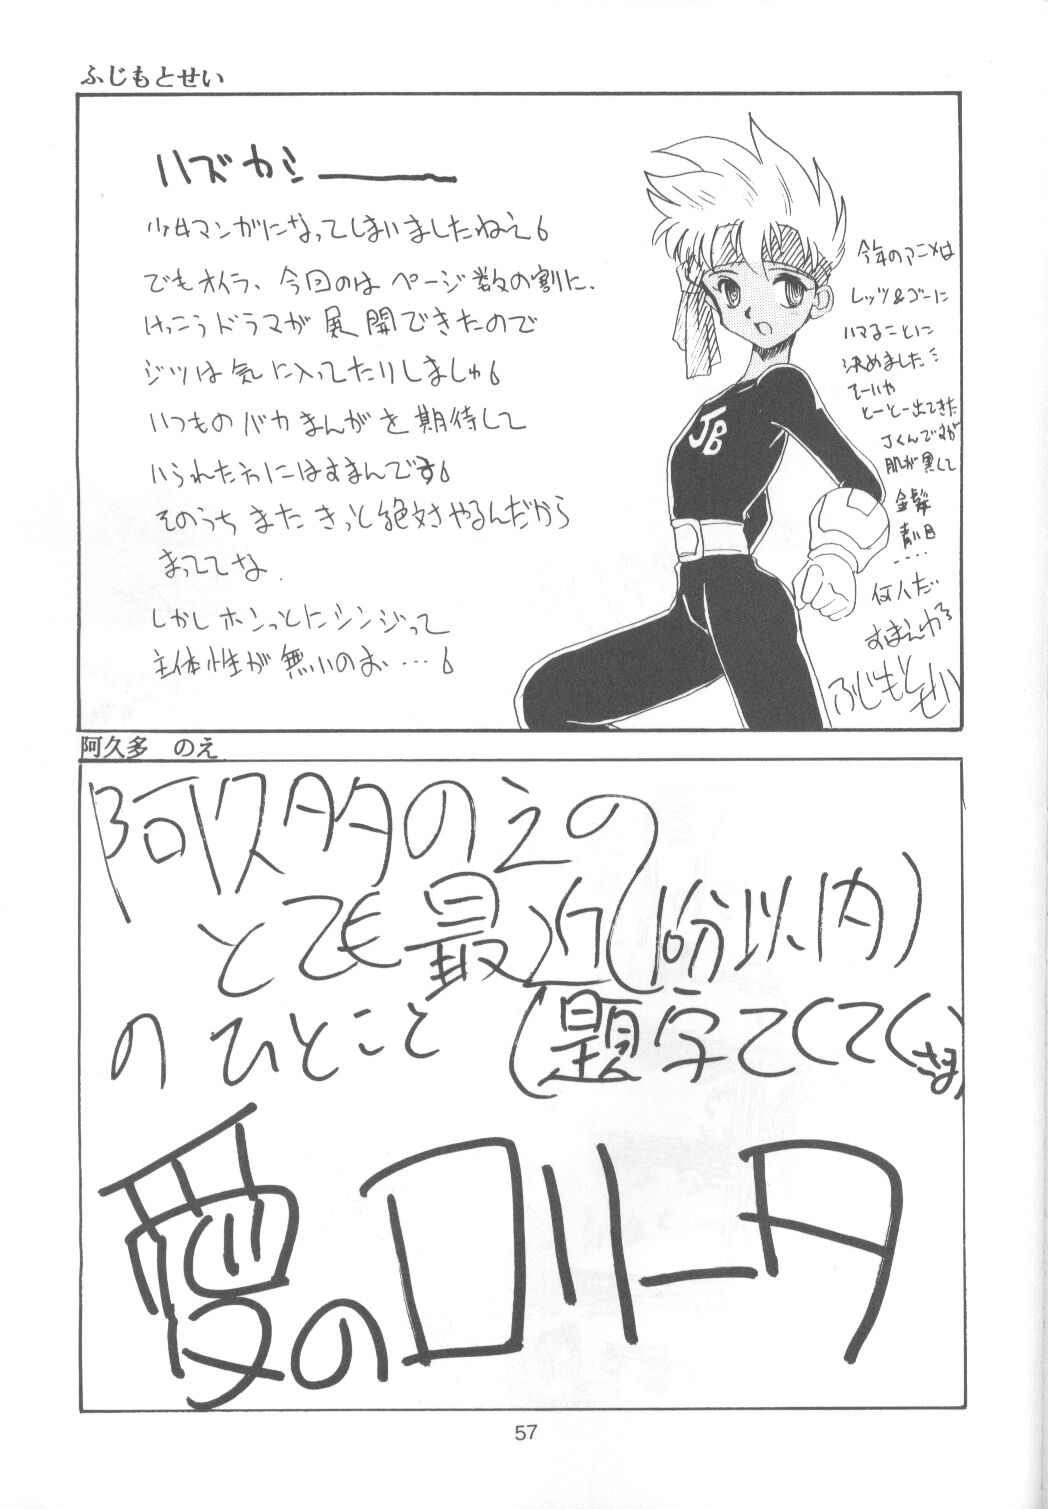 ふじもとせい
ハズカシ――
少女マンガになってしまいましたねえ
でもオイラ、今回のはページ数の割に、
けっこうドラマが展開できたので
ジツは気に入ってたりしましゅ
いつものバカまんがを期待して
いられた方にはすまんです
そのうちまたきっと絶対やるんだから
まっててな
しかしホンっとにシンジって
主体性が無いのお…
今年のアニメは
レッツ&ゴーに
ハマることに
決めました
てーいや
とーとー出てきた
Jくんですが
肌が黒くて
金髪
青い目
....
何人だ
すまんわる
ふじもとせい
JB
阿久多 のえ
阿久多のえの
とても最近(10分以内)
のひとこと(題字てくてくさま)
愛のロリータ
57